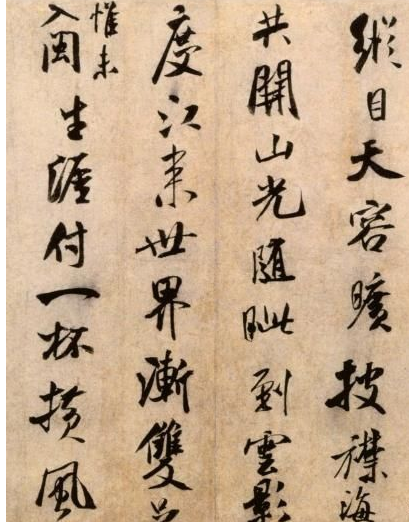 縱目天容曠披襟海
共開山光隨眦到雲影
度江來世界漸雙
惟未
入閩
生涯付一杯橫風